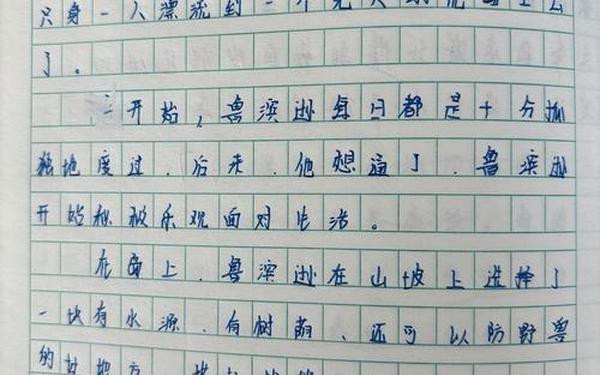 只身一人漂流到一个无人的荒岛上去
了。
一开始，鲁滨逊每日都是十分孤
独地度过，后来，他想通了，鲁滨逊
开始积极乐观面对生活。
在岛上，鲁滨逊在山坡上选择了
一块有水源，有树荫，还可以防野兽
的
地方